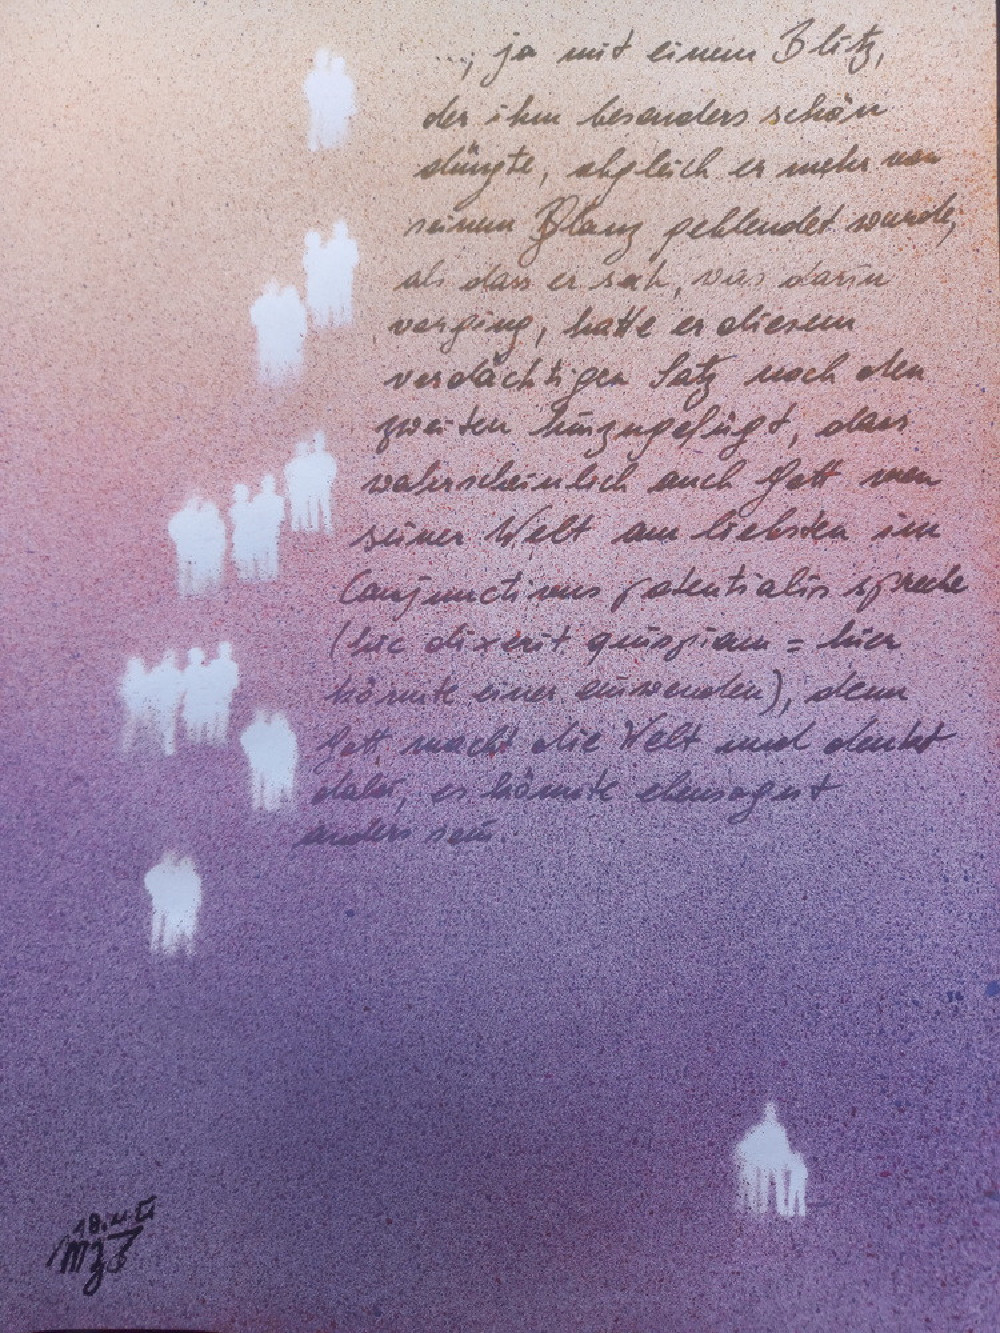 ...; ja mit einem Blitz,
der ihm besonders schön
düngte, obgleich er mehr von
seinem Glanz geblendet wurde,
als dass er sah, was darin
vorging, hatte er diesem
verdächtigen Satz noch den
zweiten hinzugefügt, dass
wahrscheinlich auch Gott von
seiner Welt am liebsten im
Conjunctivus potentialis spreche
(hic dixerit quispiam = hier
könnte einer einwenden), denn
Gott macht die Welt und denkt
dabei, es könnte ebensogut
anders sein.